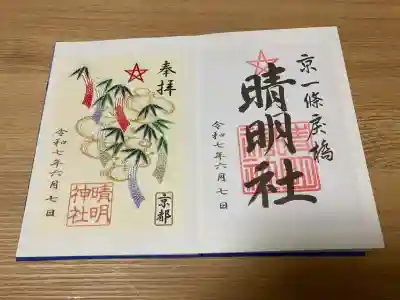 京一條戻橋
晴明社
令和七年六月七日
奉拝
令和七年六月七日
晴明
神社
京都